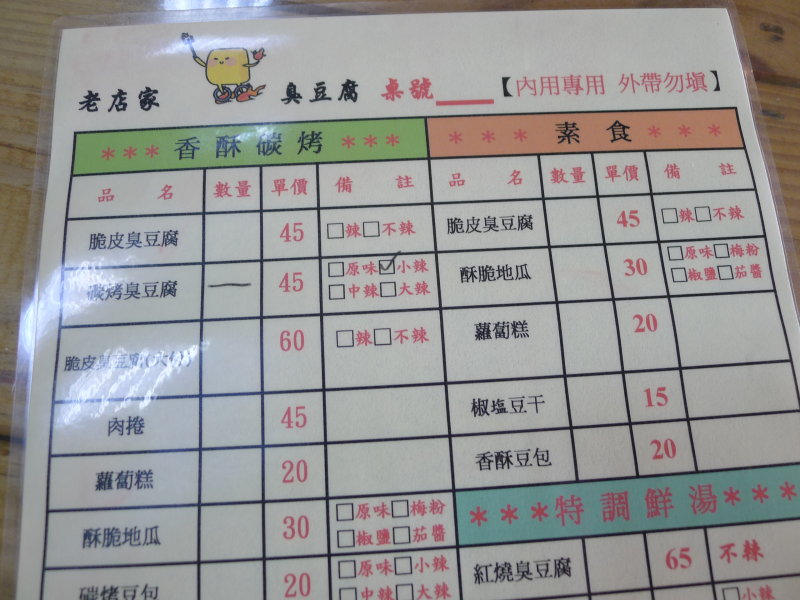 老店家 臭豆腐 桌號 【內用專用 外帶勿塡】
*** 香酥碳烤 ***
品名 數量 單價 備註
脆皮臭豆腐 45 □辣□不辣
碳烤臭豆腐 一 45 □原味☑小辣
□中辣□大辣
脆皮臭豆腐(大份) 60 □辣□不辣
肉捲 45
蘿蔔糕 20
酥脆地瓜 30 □原味□梅粉
□椒鹽□茄醬
碳烤豆包 20 □原味□小辣
□中辣□大辣
*** 素食 ***
品名 數量 單價 備註
脆皮臭豆腐 45 □辣□不辣
酥脆地瓜 30 □原味□梅粉
□椒鹽□茄醬
蘿蔔糕 20
椒塩豆干 15
香酥豆包 20
***特調鮮湯***
紅燒臭豆腐 65 不辣
□小辣